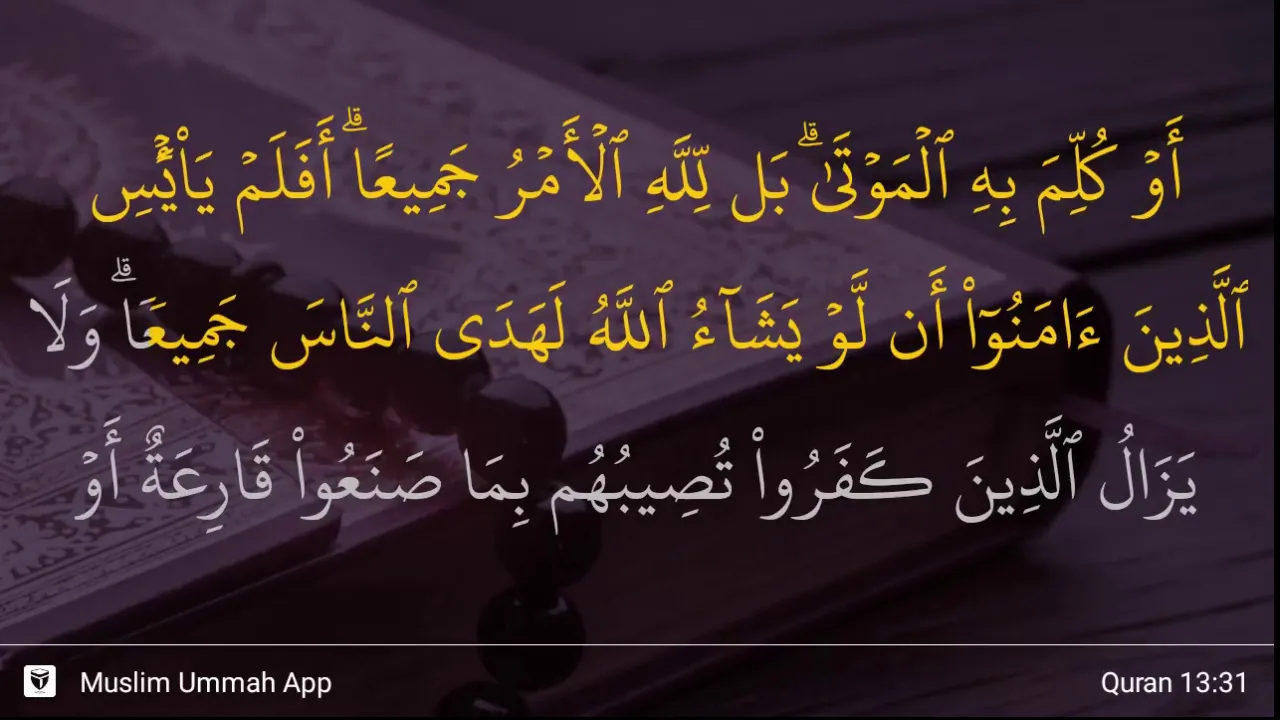 أَوۡ كُلِّمَ بِهِ ٱلۡمَوۡتَىٰۗ بَل لِّلَّهِ ٱلۡأَمۡرُ جَمِيعًاۗ أَفَلَمۡ يَاْيۡـَٔسِ
ٱلَّذِينَ ءَامَنُوٓاْ أَن لَّوۡ يَشَآءُ ٱللَّهُ لَهَدَى ٱلنَّاسَ جَمِيعٗاۗ وَلَا
يَزَالُ ٱلَّذِينَ كَفَرُواْ تُصِيبُهُم بِمَا صَنَعُواْ قَارِعَةٌ أَوۡ
Muslim Ummah App
Quran 13:31